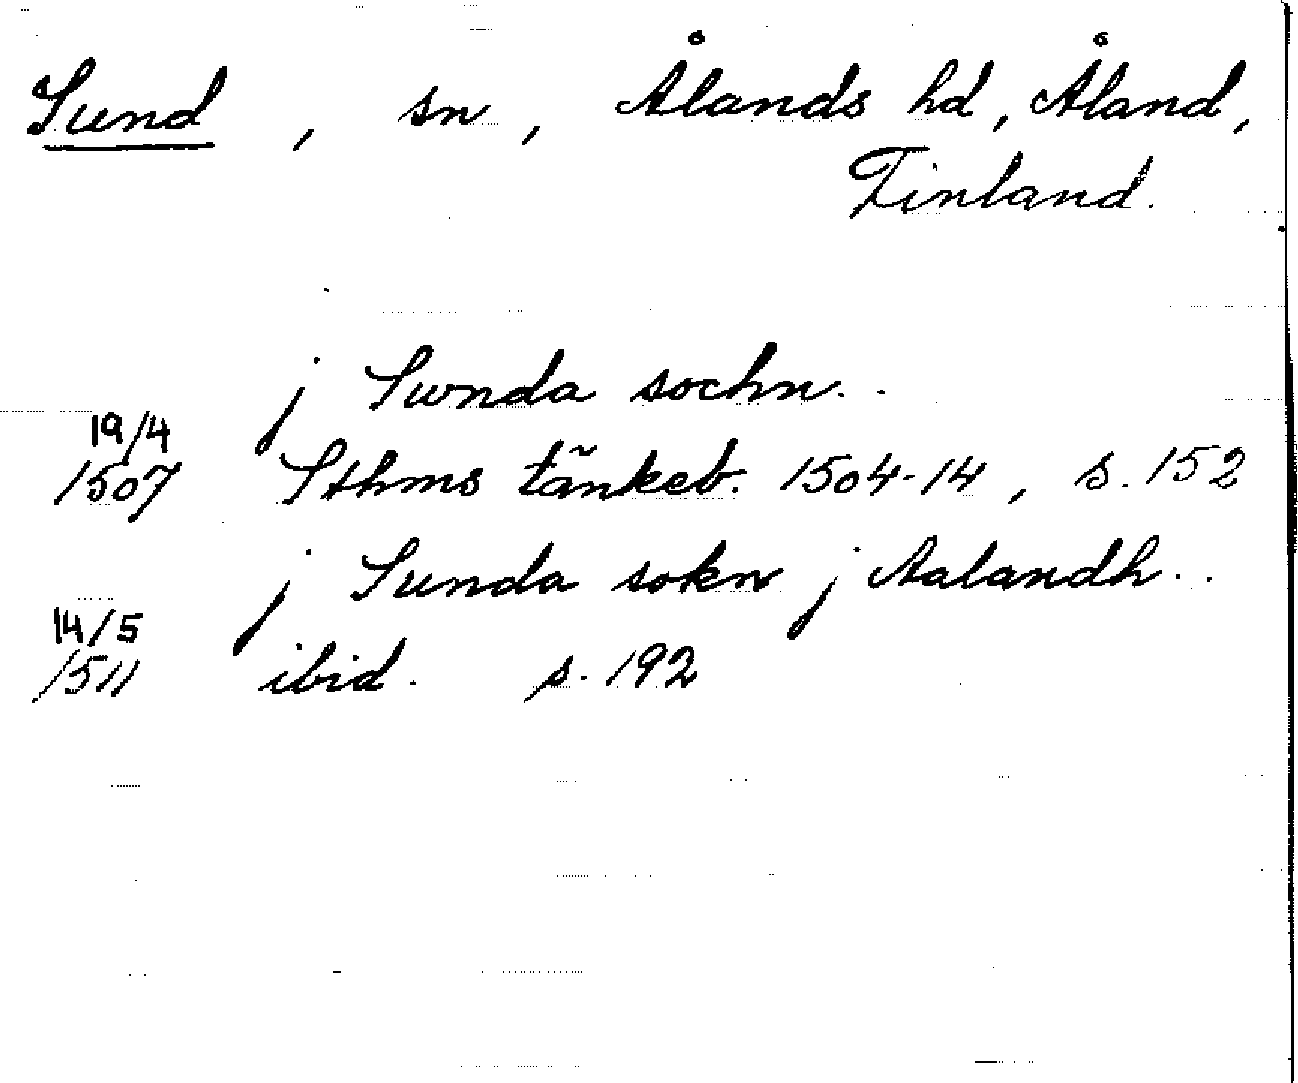 Sund, sn, Ålands hd, Åland,
Finland.
j Swnda sochn..
19/4
1507 Sthms tänkeb. 1504-14, s. 152
j Sunda sokn j Aalandh..
14/5
1511 ibid. s. 192